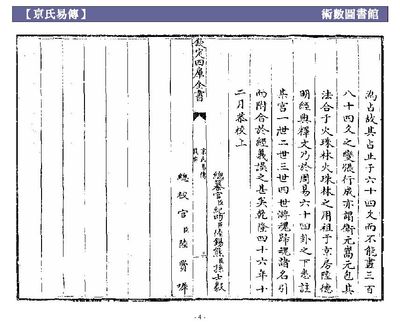 【京氏易傳】
術數圖書館
為占故其占止于六十四爻而不能盡三百
八十四爻之變張行成亦謂衞元嵩元包其
法合于火珠林火珠林之用祖于京房陸德
明經典釋文乃於周易六十四卦之下悉註
某宫一世二世三世四世游魂歸魂諸名引
而附合於經義誤之甚矣乾隆四十六年十
二月恭校上
總纂官臣紀昀臣陸錫熊臣孫士毅
總校官臣陸費墀
欽定四庫全書
京氏易傳
提要
六
- 4 -